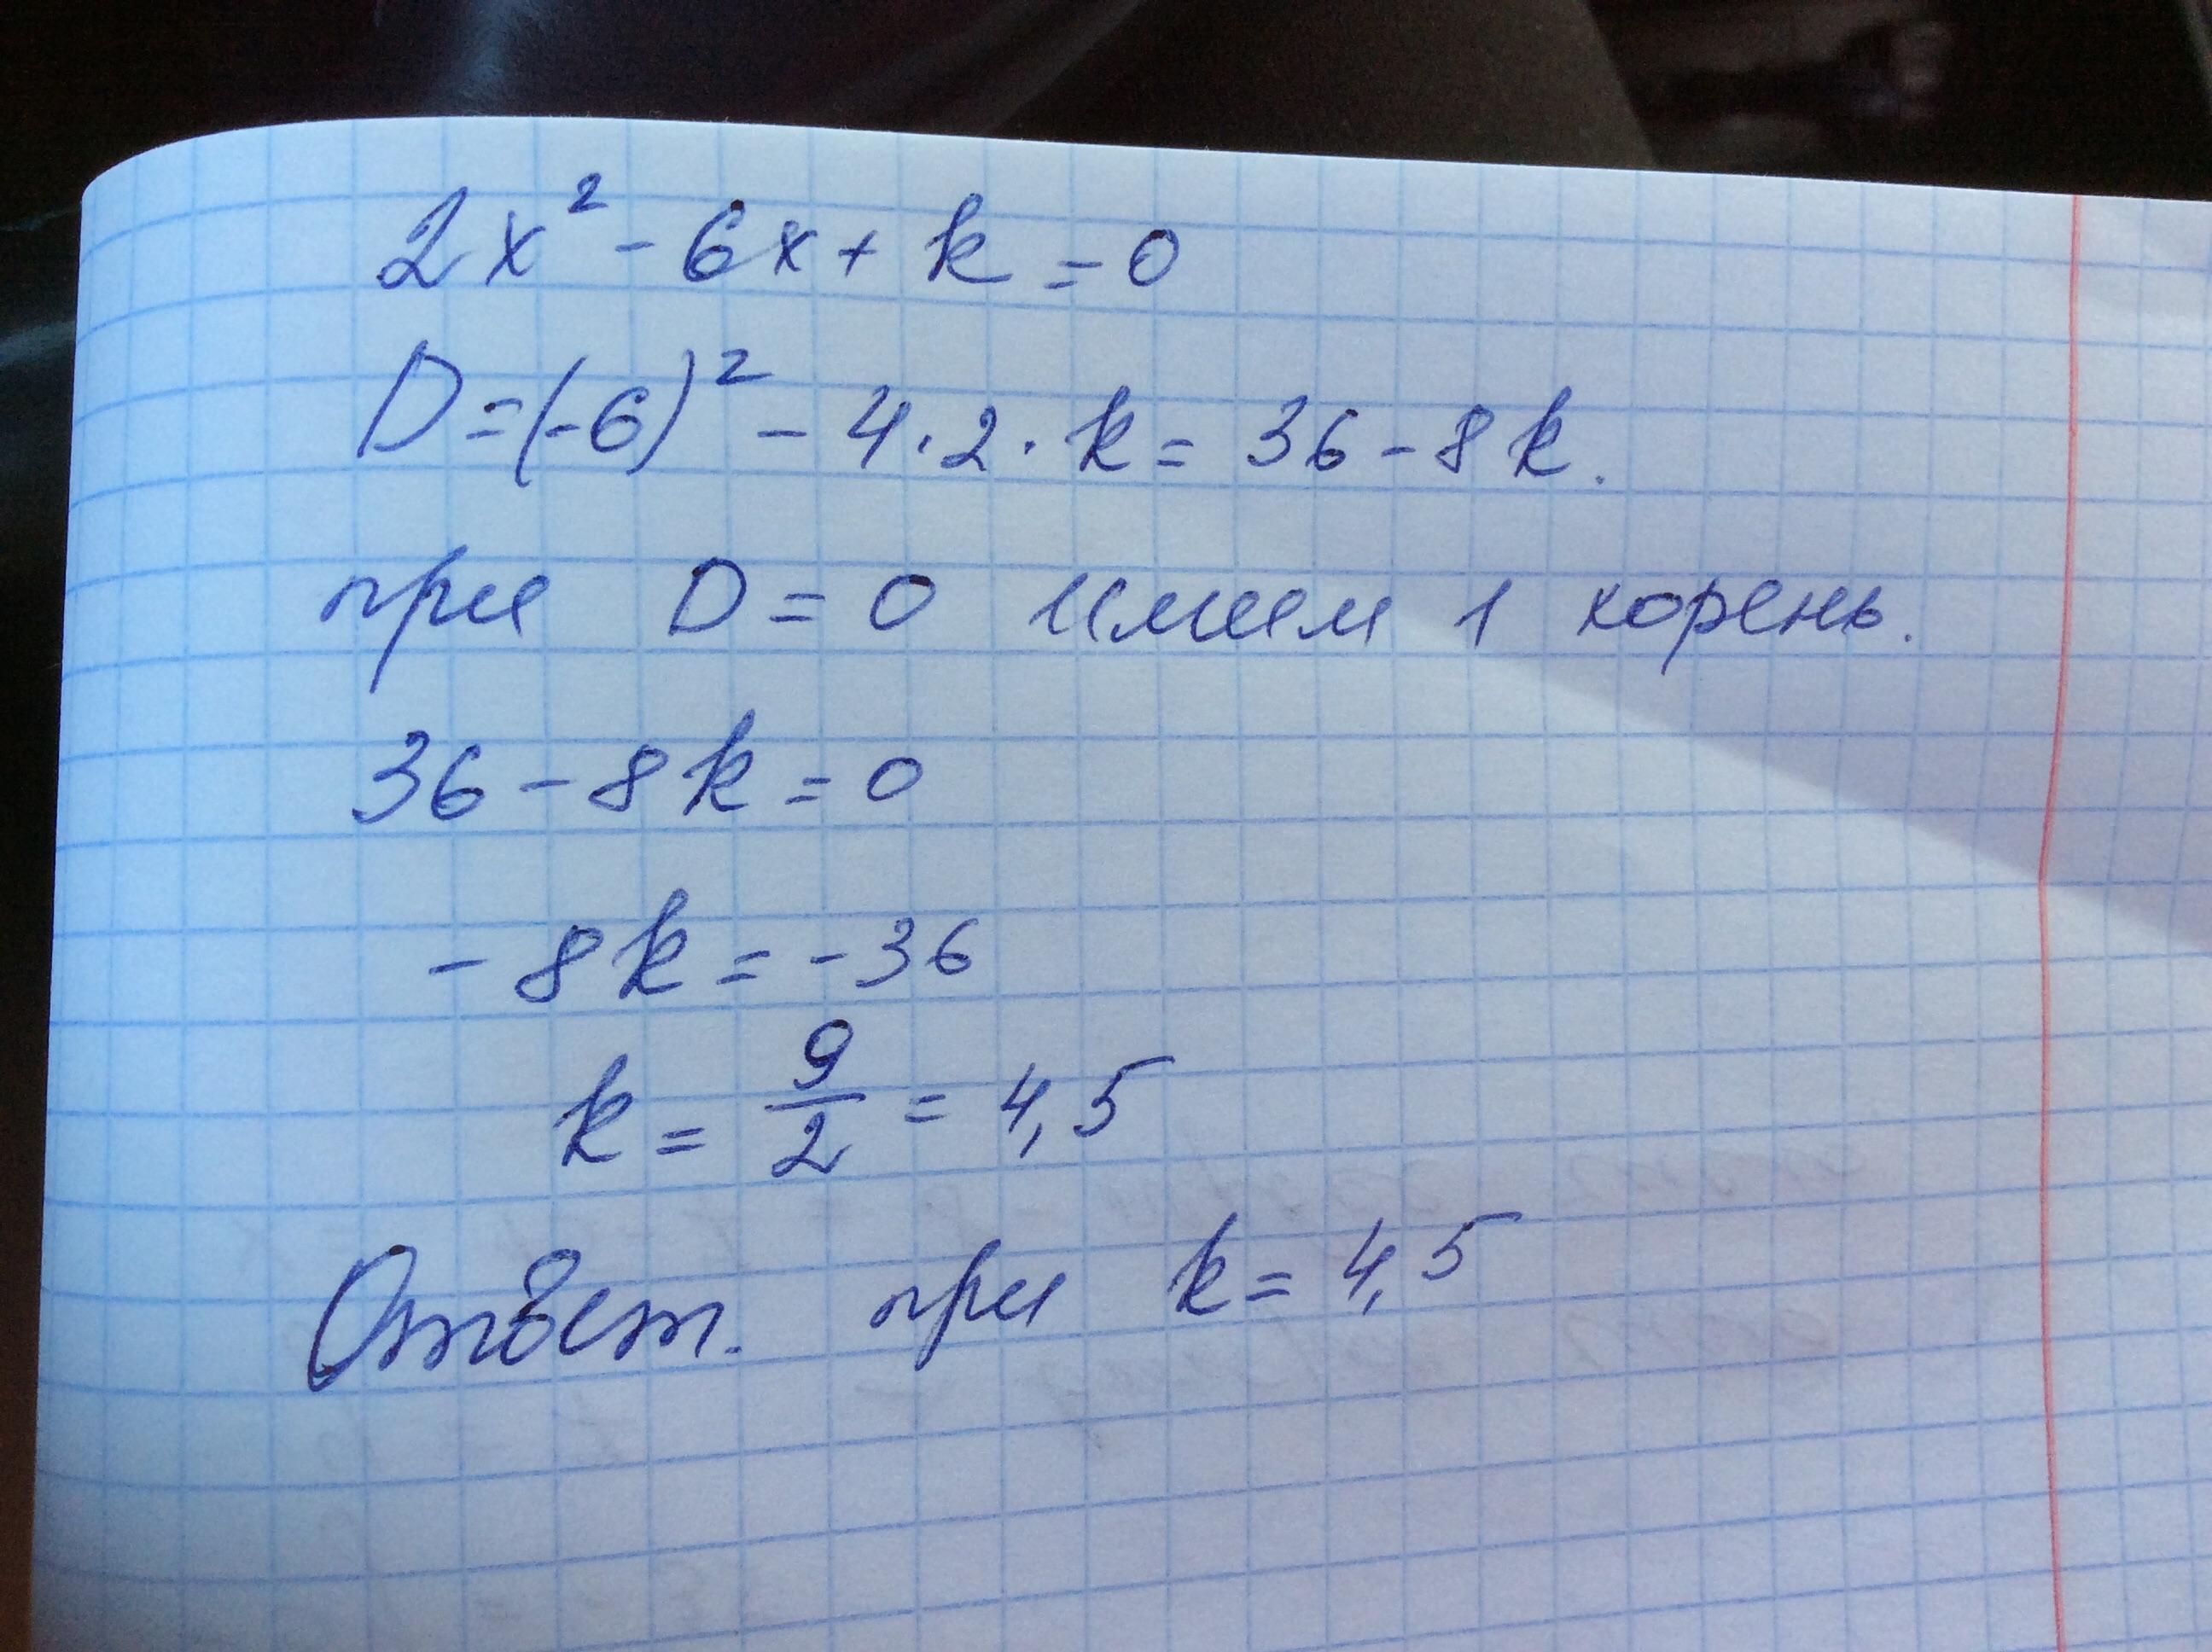 2x² - 6x + k = 0
D = (-6)² - 4·2·k = 36 - 8k.
при D = 0 имеем 1 корень.
36 - 8k = 0
- 8k = -36
k = 9/2 = 4,5
Ответ. при k = 4,5